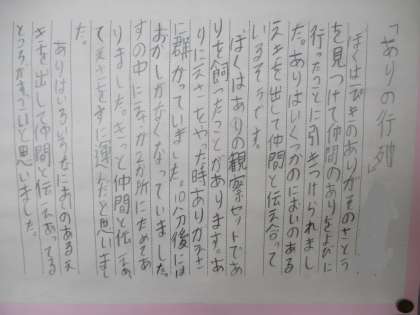 「ありの行列」
ぼくは一ぴきのありがそのさとう
を見つけて仲間のありをよびに
行ったことに引きつけられまし
た。ありはいくつかのにおいのある
えきを出して仲間と伝え合って
いるそうです。
ぼくはありの観察セットであ
りを飼ったことがあります。あ
りにえさをやった時ありがえさ
に群がっていました。10分後には
おかしがなくなっていました。
すの中に二か所にためてあ
りました。きっと仲間と伝え合っ
てえさをすに運んだと思いまし
た。
ありはいろいろなにおいのあるえ
きを出して仲間と伝え合ってる
ところがすごいと思いました。